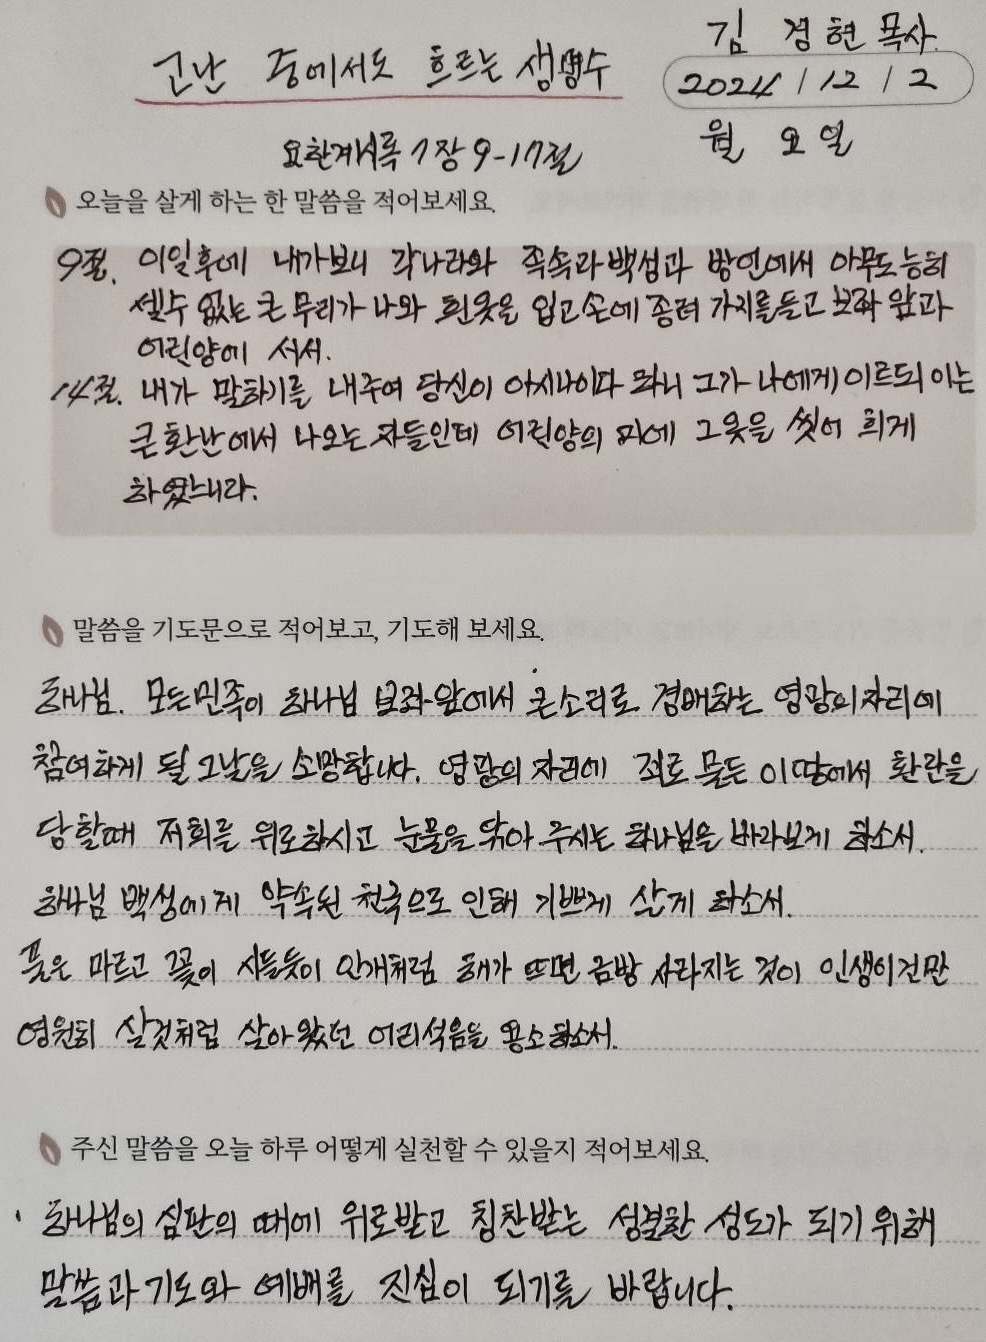 김 경현 목사
고난 중에서도 흐르는 생명수
2024 / 12 / 2
월 요일
요한계시록 7장 9-17절
오늘을 살게 하는 한 말씀을 적어보세요.
9절. 이일후에 내가보니 각나라와 족속과백성과 방언에서 아무도능히
셀수 없는 큰 무리가 나와 흰옷을 입고손에 종려 가지를들고 보좌 앞과
어린양에 서서.
14절. 내가 말하기를 내주여 당신이 아시나이다 하니 그가 나에게이르되 이는
큰환난에서 나오는 자들인데 어린양의 피에 그옷을 씻어 희게
하였느니라.
말씀을 기도문으로 적어보고, 기도해 보세요.
하나님. 모든민족이 하나님 보좌앞에서 큰소리로 경배하는 영광의자리에
참여하게 될 그날을 소망합니다. 영광의 자리에 죄로 물든 이땅에서 환란을
당할때 저희를 위로하시고 눈물을 닦아 주시는 하나님을 바라보게 하소서.
하나님 백성에게 약속된 천국으로 인해 기쁘게 살게 하소서.
풀은 마르고 꽃이 시들듯이 안개처럼 해가 뜨면 금방 사라지는 것이 인생이건만
영원히 살것처럼 살아왔던 어리석음을 용소하소서.
주신 말씀을 오늘 하루 어떻게 실천할 수 있을지 적어보세요.
하나님의 심판의 때에 위로받고 칭찬받는 성결한 성도가 되기위해
말씀과기도와 예배를 진심이 되기를 바랍니다.